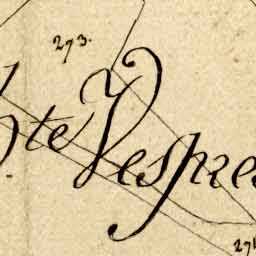 273.
te Vespre
271